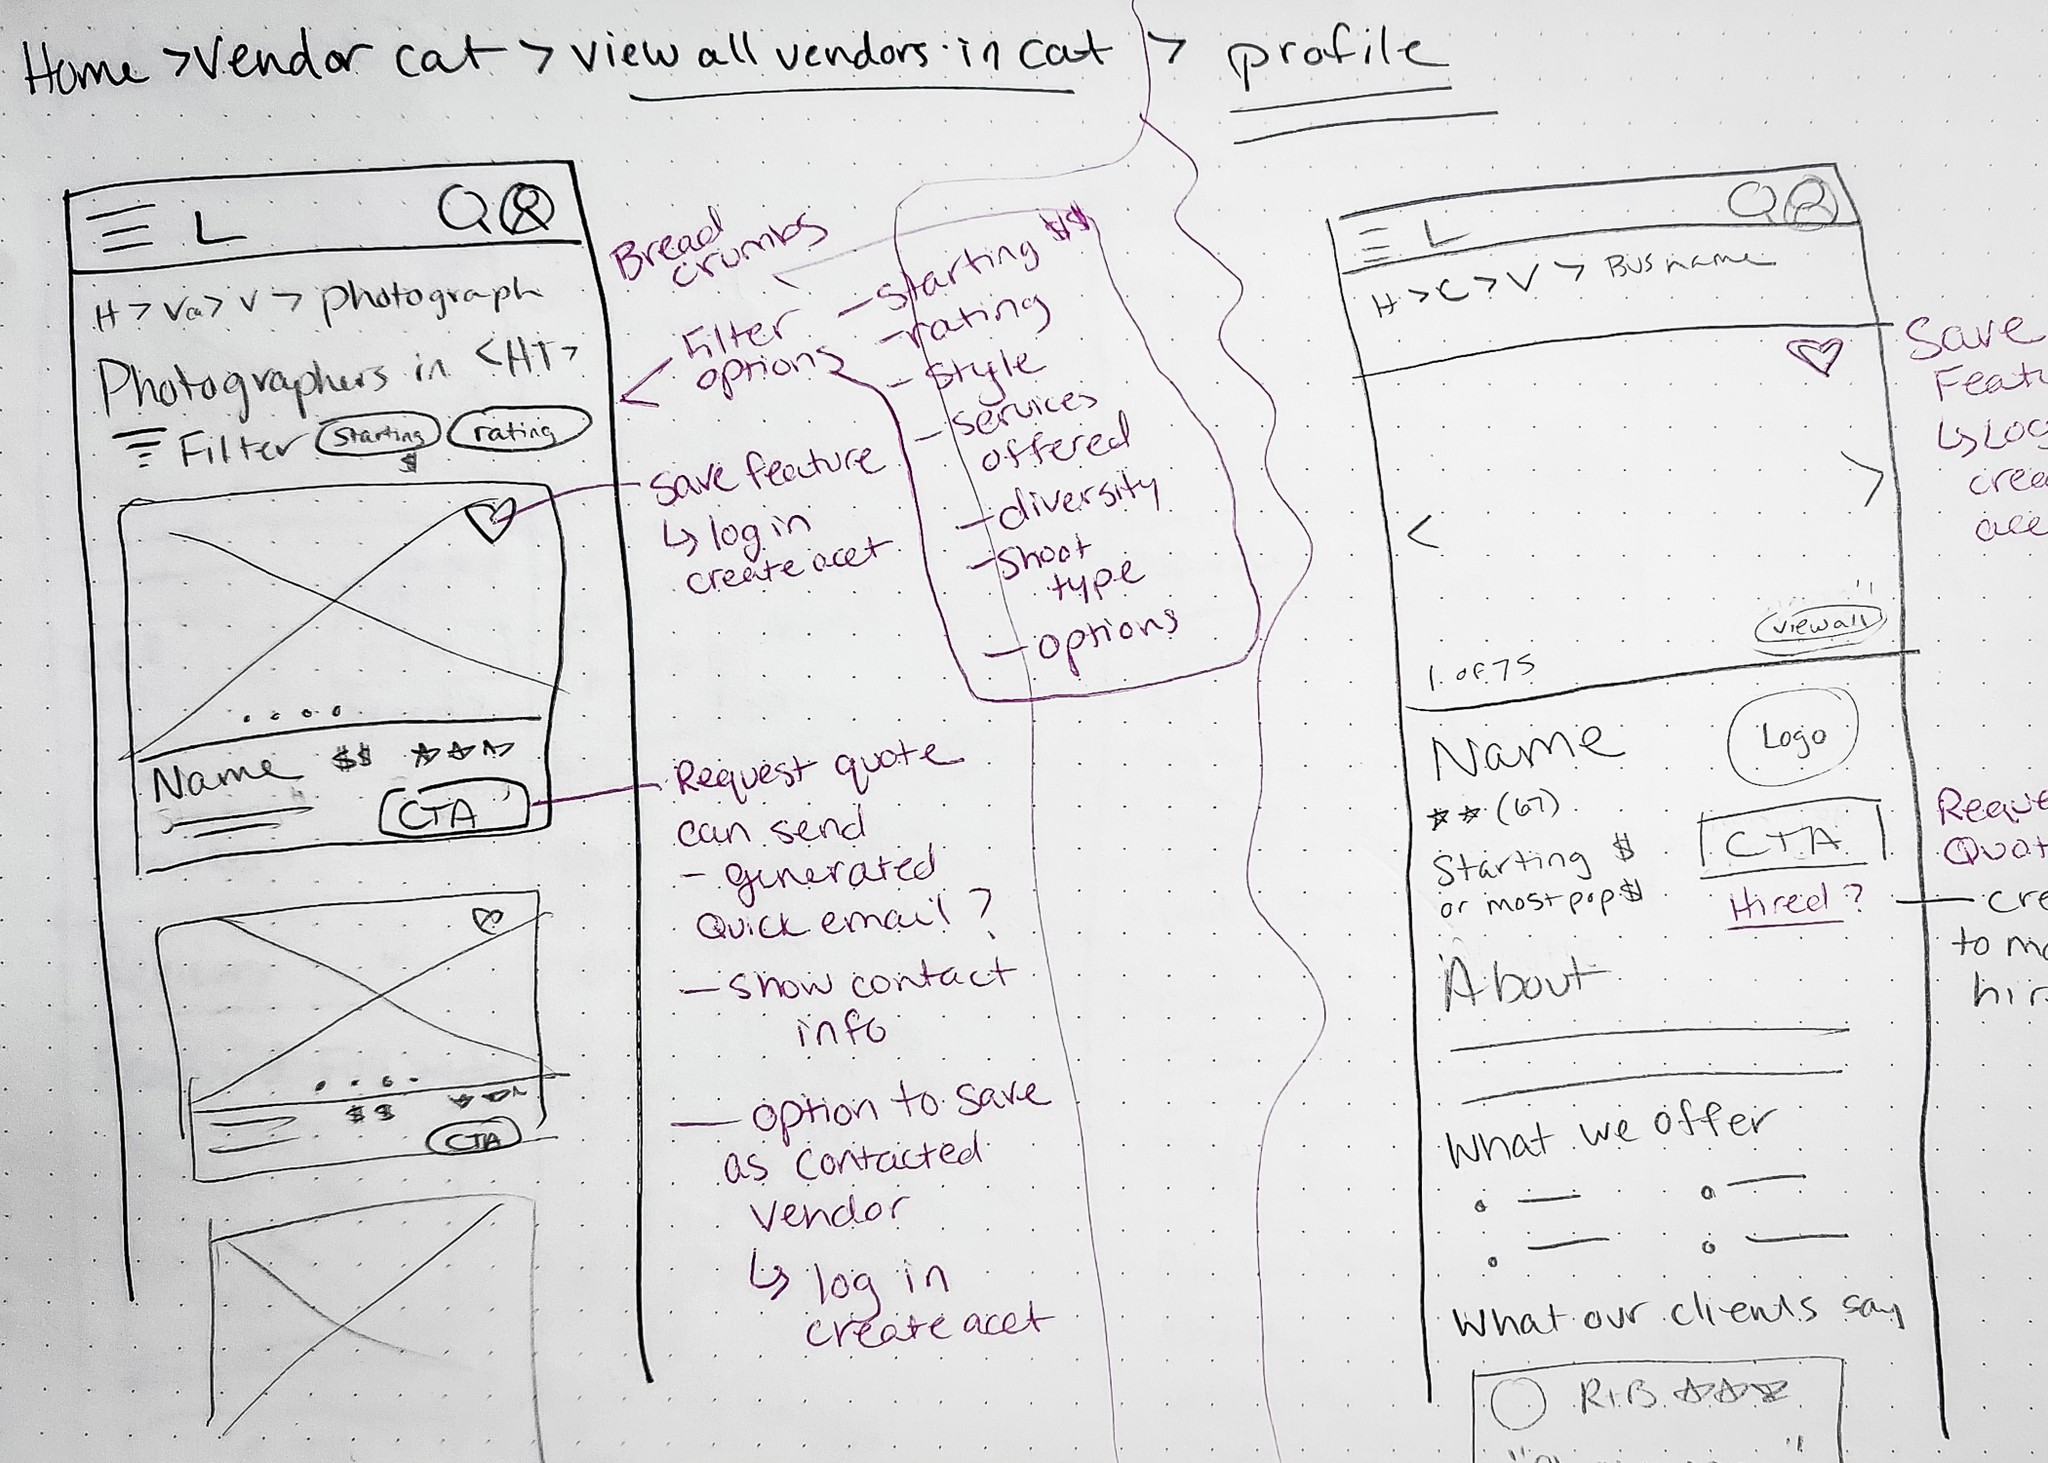 Home > Vendor cat > view all vendors in cat > profile
L
H > Va > V > photograph
Photographers in <HT>
Filter starting $ rating
Name $$
CTA
$$
CTA
Bread
crumbs
Filter
options
- starting $$
- rating
- style
- services
offered
- diversity
- shoot
type
- options
save feature
↳ log in
create acct
Request quote
can send
- generated
Quick email?
- show contact
info
- option to save
as contacted
vendor
↳ log in
create acct
L
H > C > V > Bus name
<
>
view all
1 of 75
Name
Logo
(67)
CTA
Starting $
or most pop $
Hired?
About
What we offer
What our clients say
R+B
Save
Featu
↳ Log
crea
acc
Reque
Quot
- cre
to ma
hir